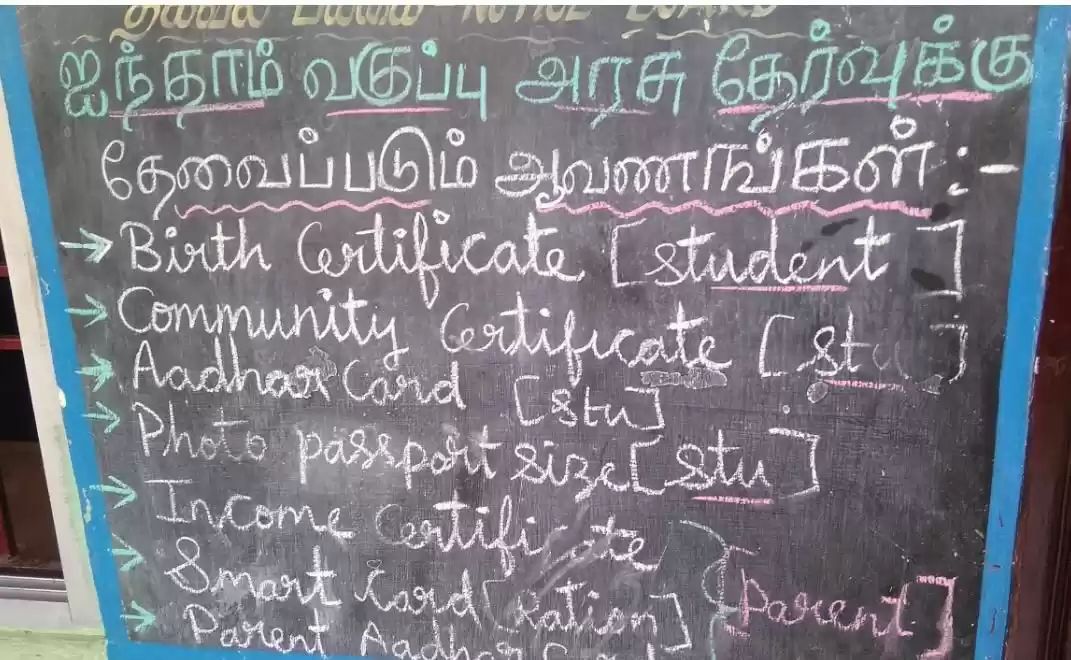 தகவல் பலகை NOTICE BOARD
ஐந்தாம் வகுப்பு அரசு தேர்வுக்கு
தேவைப்படும் ஆவணங்கள் :-
→ Birth Certificate [student]
→ Community Certificate [stu]
→ Aadhar Card [stu]
→ Photo passport size [stu]
→ Income Certificate
→ Smart Card [Ration] } [Parent]
→ Parent Aadhar Card